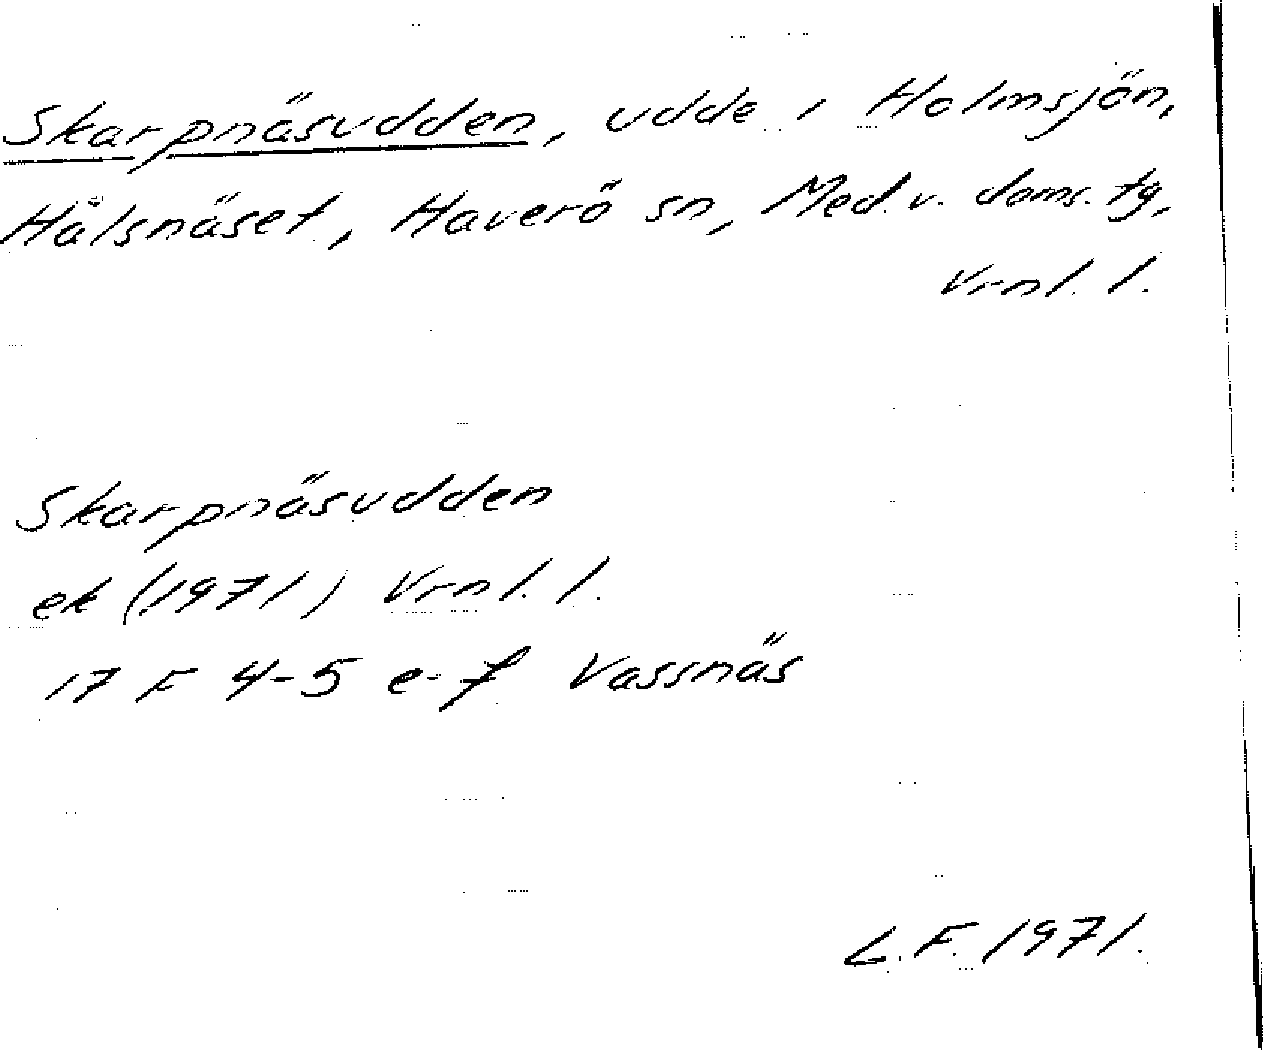 Skarpnäsudden, udde i Holmsjön,
Hålsnäset, Haverö sn, Med.v. doms. tg,
Vrnl. l.
Skarpnäsudden
ek (1971) Vrnl. l.
17 F 4-5 e-f Vassnäs
L.F. 1971.